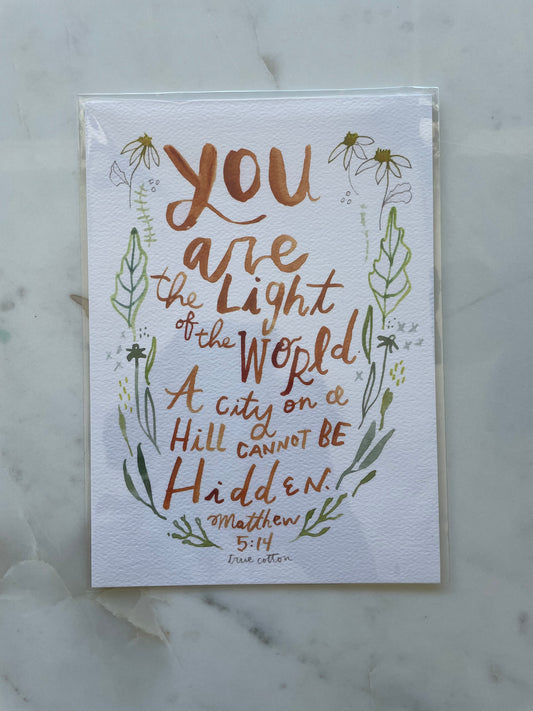 you
are
the Light
of the WORld.
A city on a
Hill CANNOT BE
HiddEN.
Matthew
5:14
true cotton